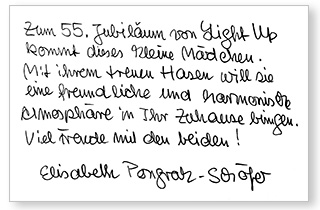 Zum 55. Jubiläum von Light Up
kommt dieses kleine Mädchen.
Mit ihrem treuen Hasen will sie
eine freundliche und harmonische
Atmosphäre in Ihr Zuhause bringen.
Viel Freude mit den beiden!
Elisabeth Pongratz - Schöfer